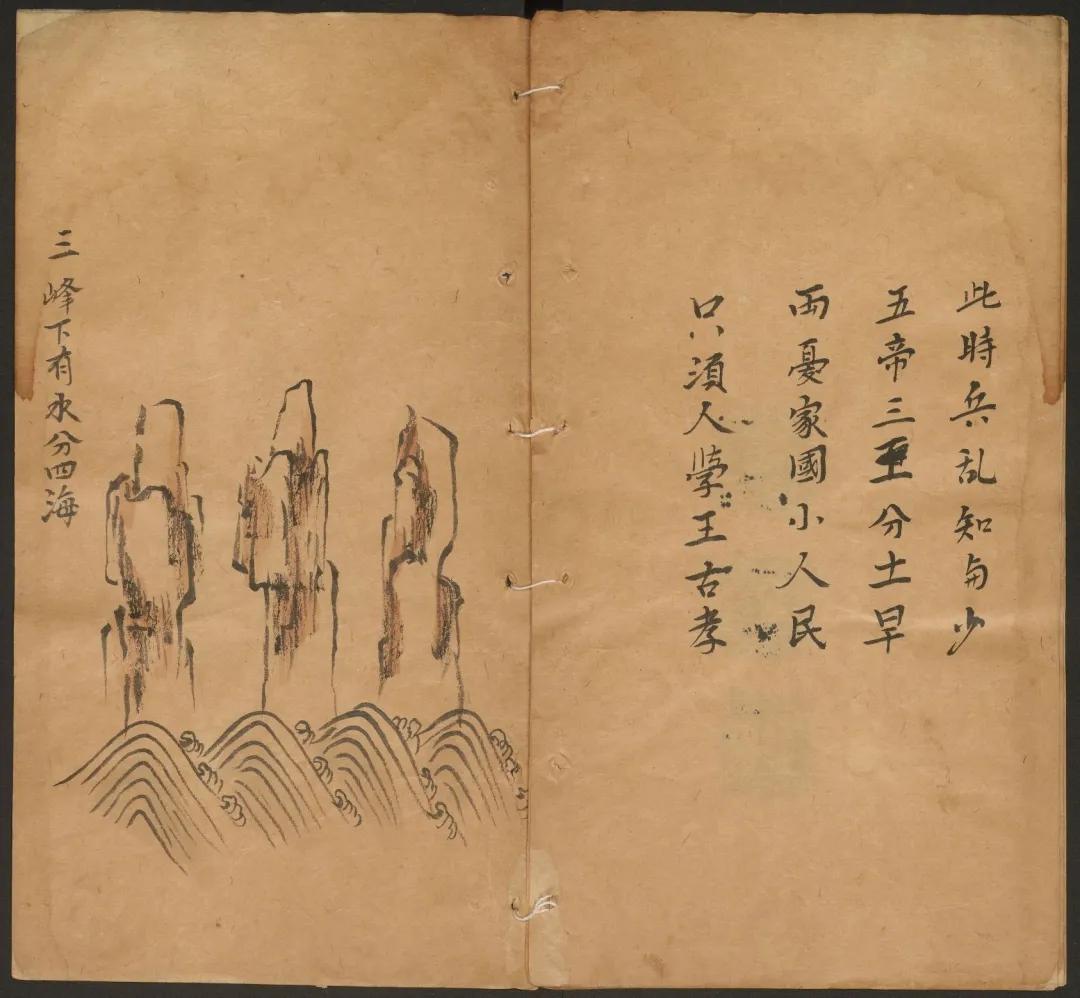 此時兵乱知少
五帝三王分土早
両憂家國小人民
只須人學王古孝
三峰下有水分四海